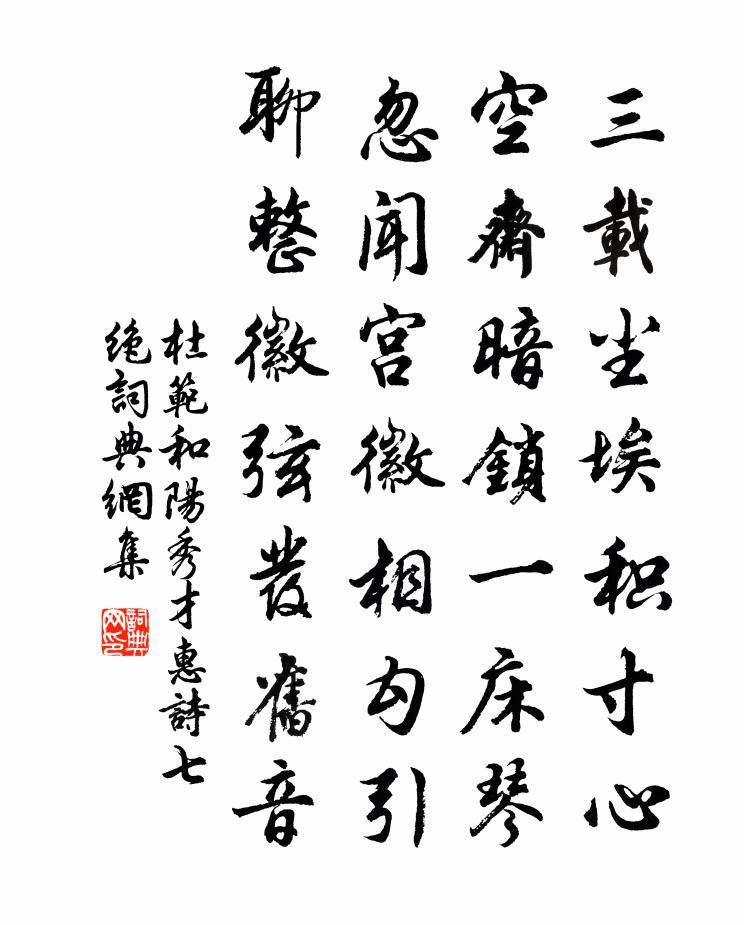 三載尘埃积寸心
空齋暗鎖一床琴
忽闻宫徽相勾引
聊整徽弦發舊音
杜範和陽秀才惠詩七
絶詞典網集
詞典
网印